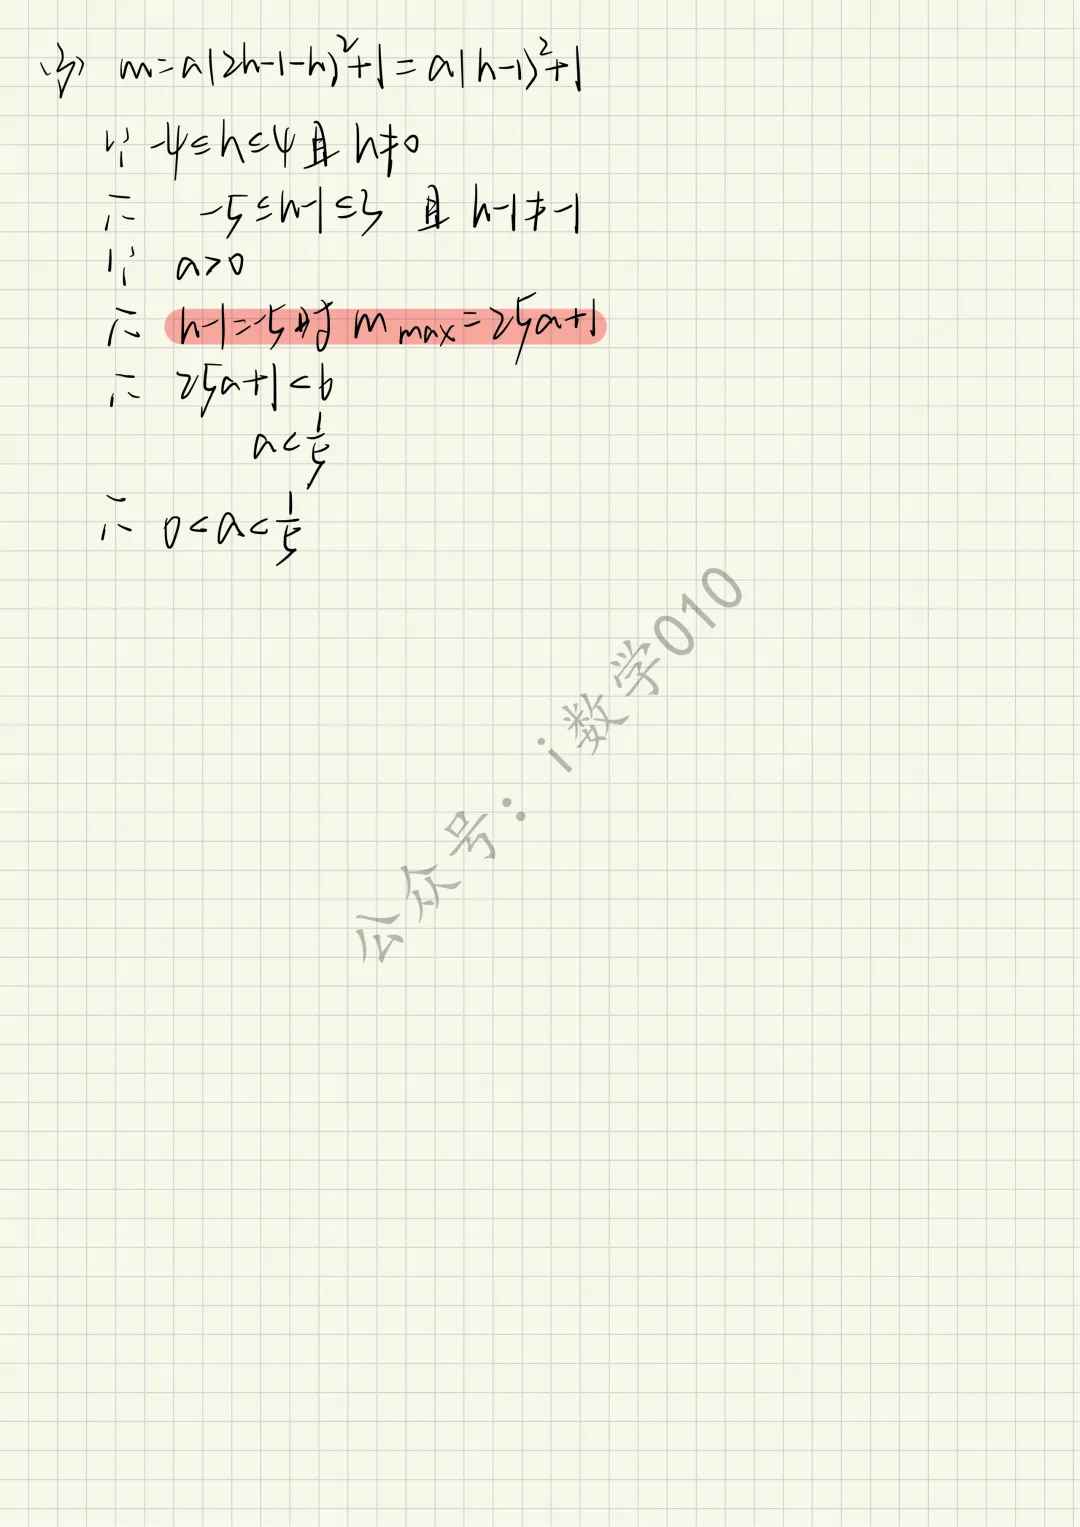 (3) m=a(2h-1-h)²+1=a(h-1)²+1
∵ -4≤h≤4且h≠0
∴ -5≤h-1≤3 且 h-1≠-1
∵ a>0
∴ h-1=-5时 m max=25a+1
∴ 25a+1<6
a<1/5
∴ 0<a<1/5
公众号：i数学010